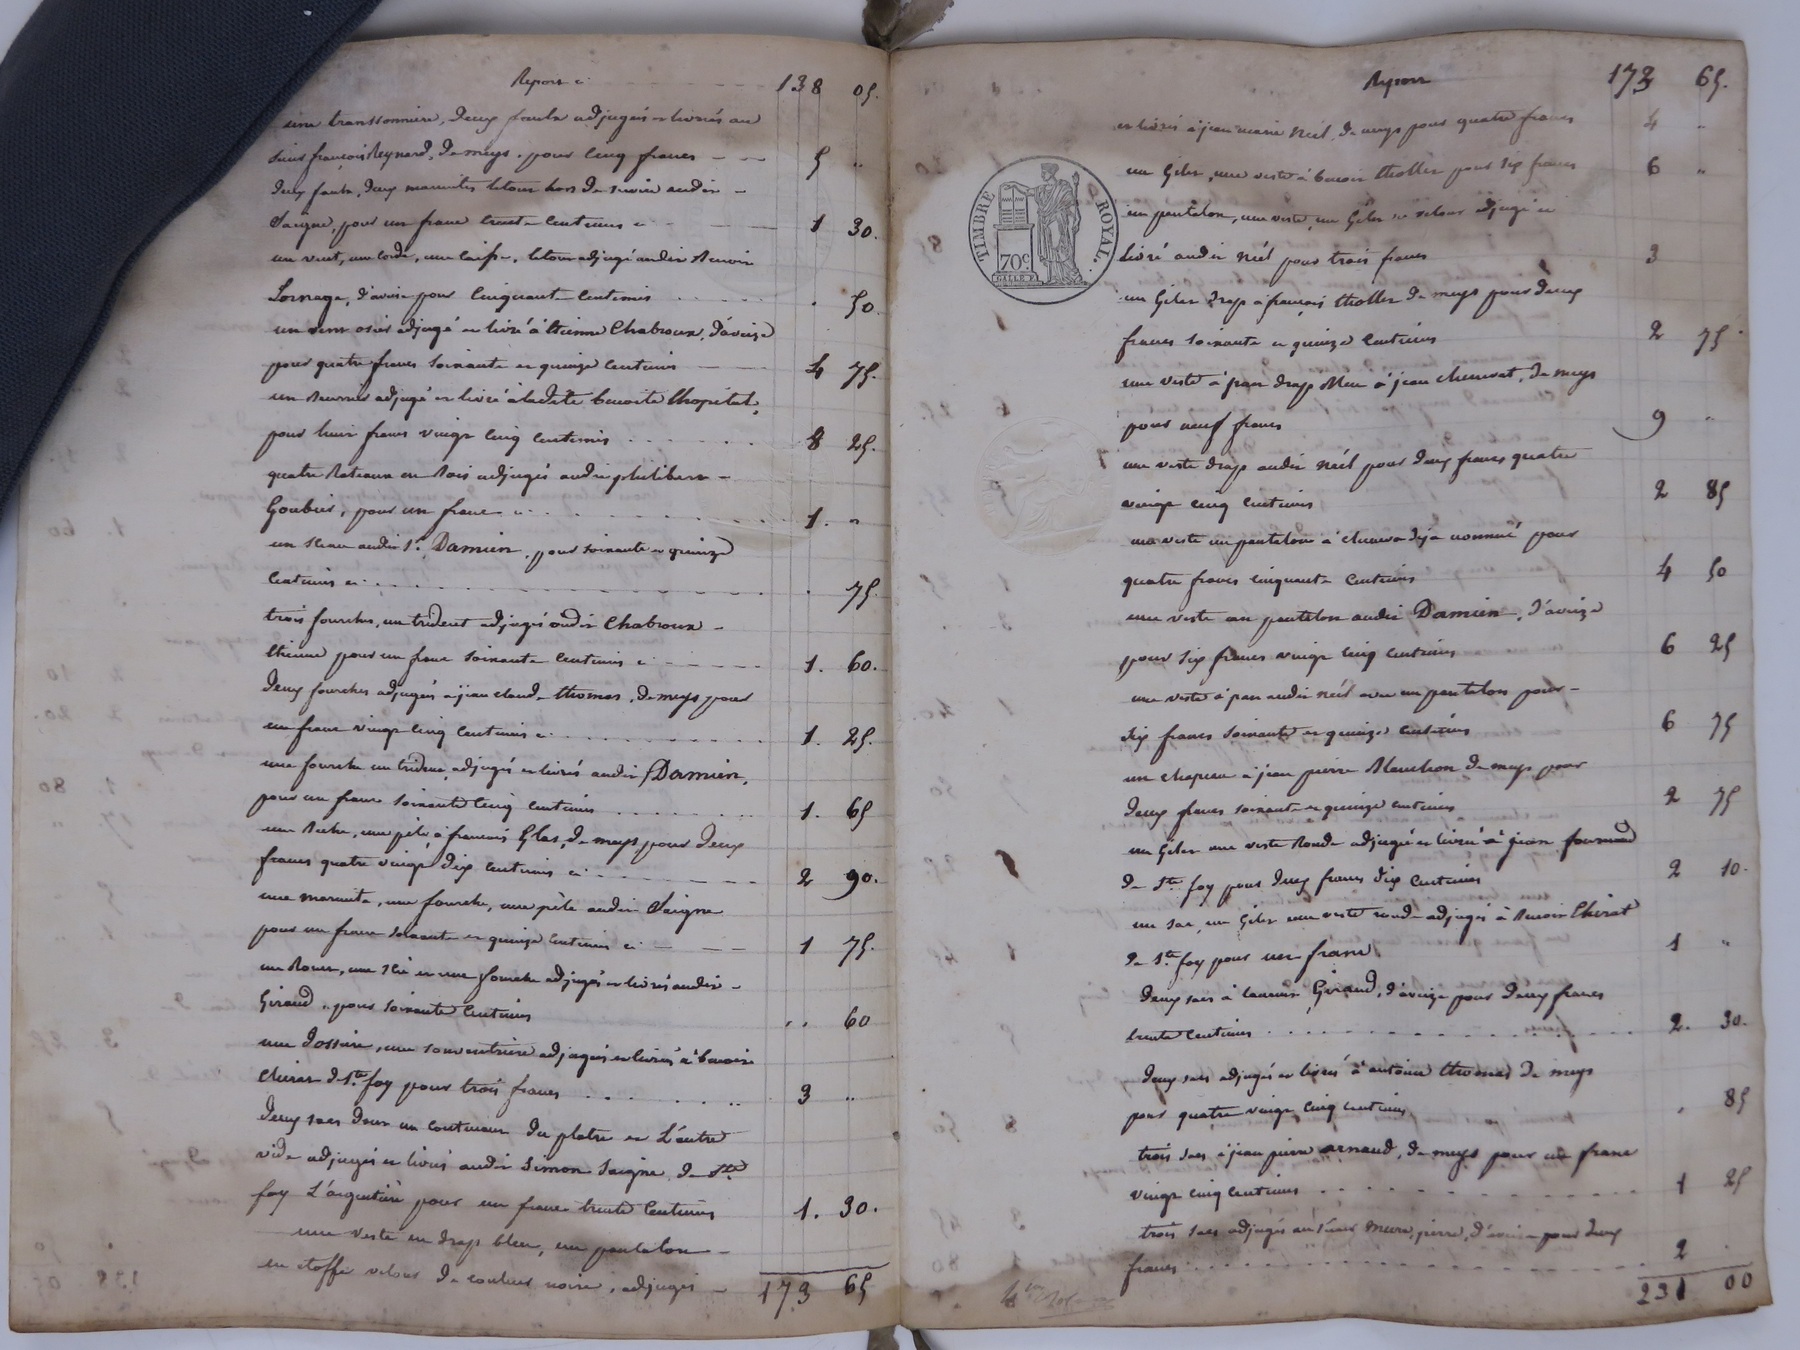 Report ci 138 05.
une transonnière, deux faulx adjugés et livrés au
sieur françois Reynard, de meys. pour cinq francs 5 "
deux faulx, deux marmites le tout hors de service audit
Saigne, pour un franc trente centimes ci 1 30.
un vent, une corde, une caisse, le tout adjugé audit Benoit
Lornage, d'aveize pour cinquante centimes . 50
un osier adjugé et livré à étienne Chabroux, d'aveize
pour quatre francs soixante et quinze centimes 4 75.
un adjugé et livré à ladite benoite Lhopital,
pour huit francs vingt cinq centimes 8 25.
quatre Rateaux en bois adjugés audit philibert
Goubier, pour un franc ci 1. "
un sceau audit Sr. Damien, pour soixante et quinze
centimes ci . 75.
trois fourches, un trident adjugés audit Chabroux
étienne pour un franc soixante centimes ci 1. 60.
deux fourches adjugées à jean claude thomas, de meys pour
un franc vingt cinq centimes ci 1. 25.
une fourche un trident, adjugés et livrés audit Damien,
pour un franc soixante cinq centimes 1. 65
une Beche, une pèle, à francois Glas, de meys pour deux
francs quatre vingt dix centimes ci 2 90.
une marmite, une fourche, une pèle audit Saigne
pour un franc soixante et quinze centimes ci 1 75.
une Roue, une scie et une fourche adjugés et livrés audit
Giraud, pour soixante centimes .. 60
une dossière, une sousventrière adjugées et livrées à benoit
Chirat de Ste. foy pour trois francs 3 "
deux sacs dont un contenant du platre et L'autre
vide adjugés et livrés audit Simon Saigne de Ste
foy L'argentière pour un franc trente centimes 1. 30.
une veste en drap bleu, un pantalon
en étoffe velours de couleur noire, adjugés
173 65
Report 173 65.
et livrés à jean marie Néel, de meys pour quatre francs 4 "
un Gilet, une veste à benoit thollet pour six francs 6 "
un pantalon, une veste, un Gilet en velours adjugé et
Livré audit Néel pour trois francs 3
un Gilet drap à françois thollet de meys pour deux
francs soixante et quinze centimes 2 75
une veste à pan drap bleu à jean chenevat, de meys
pour neuf francs 9 "
une veste drap audit Néel pour deux francs quatre
vingt cinq centimes 2 85
une veste un pantalon à déja nommé pour
quatre francs cinquante centimes 4 50
une veste un pantalon audit Damien, d'aveize
pour six francs vingt cinq centimes 6 25
une veste à pan audit Néel avec un pantalon pour
six francs soixante et quinze centimes 6 75
un chapeau à jean pierre Blanchon de meys pour
deux francs soixante et quinze centimes 2 75
un Gilet une veste Ronde adjugés et livrés à jean
de Ste. foy pour deux francs dix centimes 2 10.
un sac, un Gilet une veste ronde adjugés à Benoit Chirat
de Ste. foy pour un franc 1 "
deux sacs à Giraud, d'aveize pour deux francs
trente centimes 2. 30.
deux sacs adjugés et livrés à antoine thomas de meys
pour quatre vingt cinq centimes . 85
trois sacs à jean pierre arnaud, de meys pour un franc
vingt cinq centimes 1 25
trois sacs adjugés au sieur pierre, d'aveize pour deux
francs 2 .
231 00
TIMBRE ROYAL.
70c